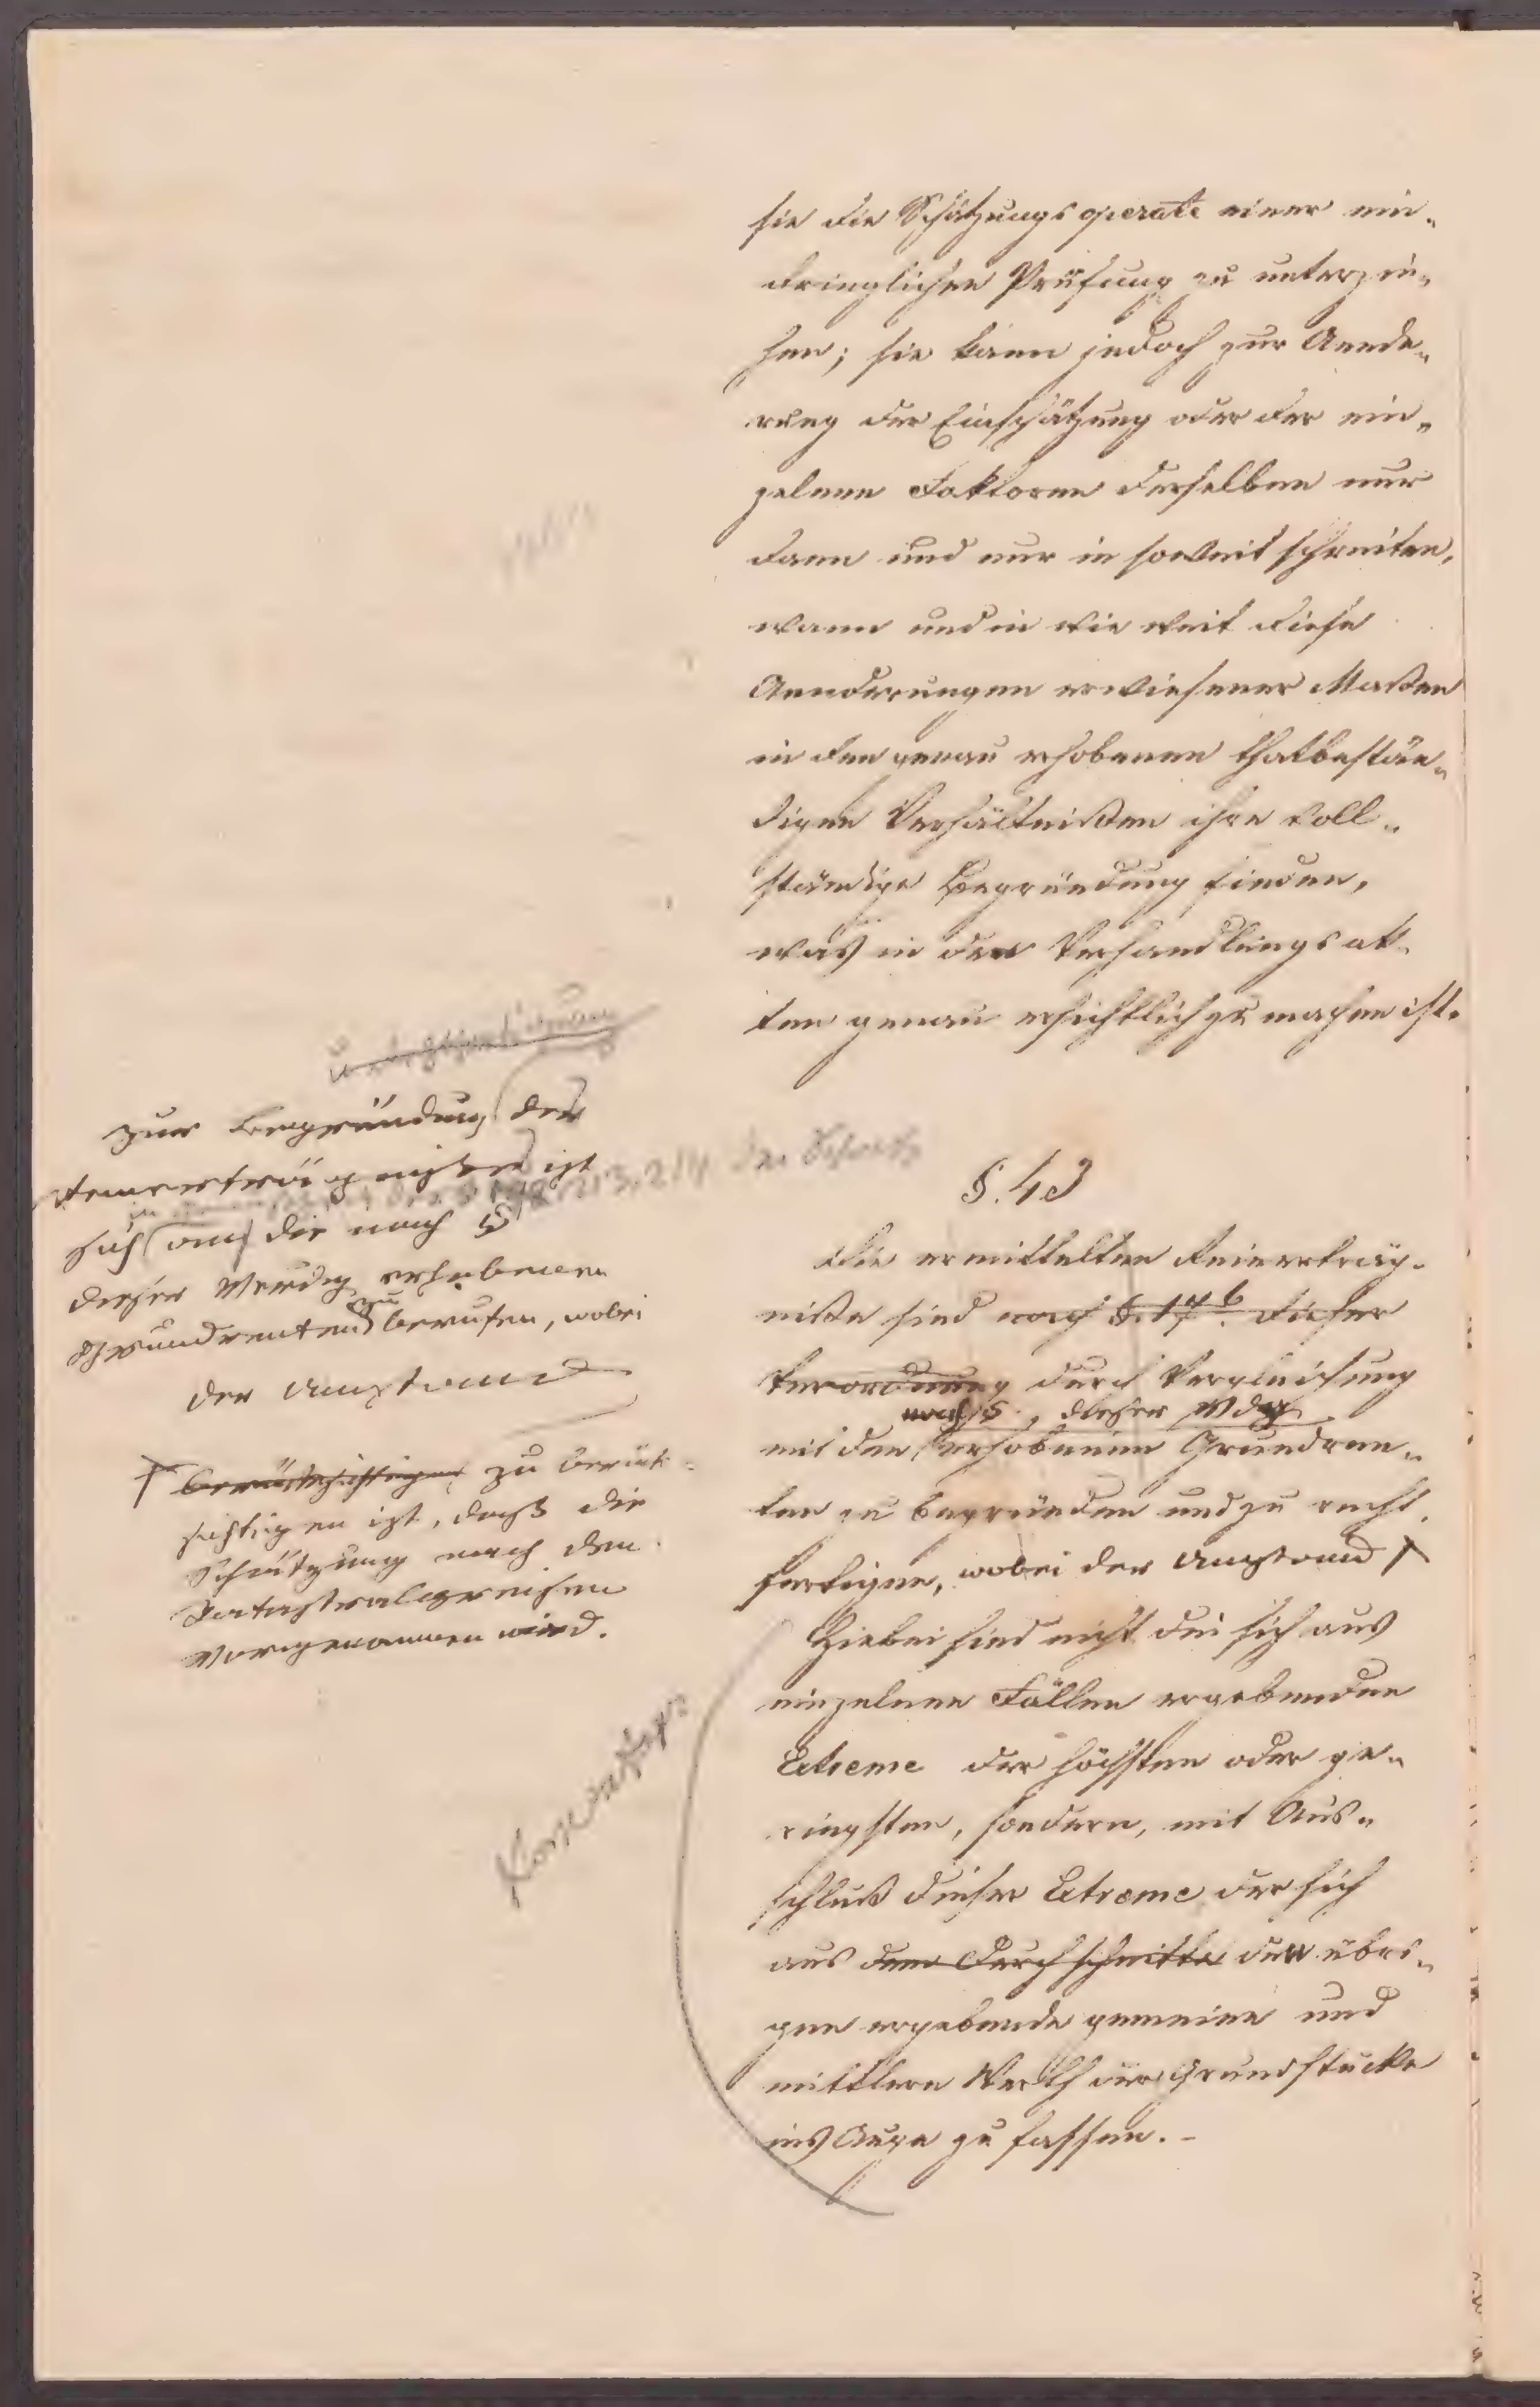 sie die Schätzungsoperate einer ein-
dringlichen Prüfung zu unterzie-
hen; sie kann jedoch zur Aende-
rung der Einschätzung oder der ein-
zelnen Faktoren derselben nur
dann und nur in soweit schreiten,
wann und in wie weit diese
Aenderungen erwiesener Maßen
in den genau erhobenen thatbestän-
digen Verhältnißen ihre voll-
ständige Begründung finden,
was in den Verhandlungsak-
ten genau ersichtlich zu machen ist.
zur Begründung der
Reinerträgnißes ist
sich auf die nach §
dieser Verordg erhobenen
Grundrenten zu berufen, wobei
der Umstand
† berücksichtigen zu berück-
sichtigen ist, daß die
Schätzung nach den
Katastralgreisen
vorgenommen wird.
§. 43
Die ermittelten Reinerträg-
niße sind nach §. 17 b dieser
Verordnung durch Vergleichung
nach § , dieser Vdg
mit den erhobenen Grundren-
ten zu begründen und zu recht-
fertigen, wobei der Umstand †
Hiebei sind nicht die sich aus
einzelnen Fällen ergebenden
Extreme der höchsten oder ge-
ringsten, sondern, mit Aus-
schluß dieser Extreme der sich
aus dem Durchschnitte den übri-
gen ergebende gemeine und
mittlere Werth der Grundstücke
ins Auge zu fassen.-